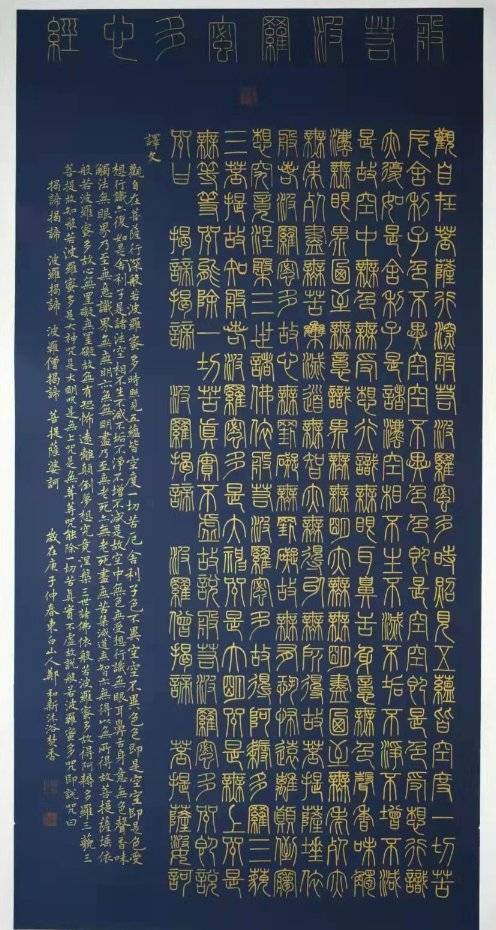 般若波羅蜜多心經
觀自在菩薩行深般若波羅蜜多時照見五蘊皆空度一切苦
厄舍利子色不異空空不異色色即是空空即是色受想行識
亦復如是舍利子是諸法空相不生不滅不垢不淨不增不減
是故空中無色無受想行識無眼耳鼻舌身意無色聲香味觸
法無眼界乃至無意識界無無明亦無無明盡乃至無老死亦
無老死盡無苦集滅道無智亦無得以無所得故菩提薩埵依
般若波羅蜜多故心無罣礙無罣礙故無有恐怖遠離顛倒夢
想究竟涅槃三世諸佛依般若波羅蜜多故得阿耨多羅三藐
三菩提故知般若波羅蜜多是大神咒是大明咒是無上咒是
無等等咒能除一切苦真實不虛故說般若波羅蜜多咒即說
咒曰 揭諦揭諦 波羅揭諦 波羅僧揭諦 菩提薩婆訶
譯文
觀自在菩薩行深般若波羅蜜多時照見五蘊皆空度一切苦厄舍利子色不異空空不異色色即是空空即是色受
想行識亦復如是舍利子是諸法空相不生不滅不垢不淨不增不減是故空中無色無受想行識無眼耳鼻舌身意無色聲香味
觸法無眼界乃至無意識界無無明亦無無明盡乃至無老死亦無老死盡無苦集滅道無智亦無得以無所得故菩提薩埵依
般若波羅蜜多故心無罣礙無罣礙故無有恐怖遠離顛倒夢想究竟涅槃三世諸佛依般若波羅蜜多故得阿耨多羅三藐三
菩提故知般若波羅蜜多是大神咒是大明咒是無上咒是無等等咒能除一切苦真實不虛故說般若波羅蜜多咒即說咒曰
揭諦揭諦 波羅揭諦 波羅僧揭諦 菩提薩婆訶 歲在庚子仲春東白山人鄭和新沐浴焚香